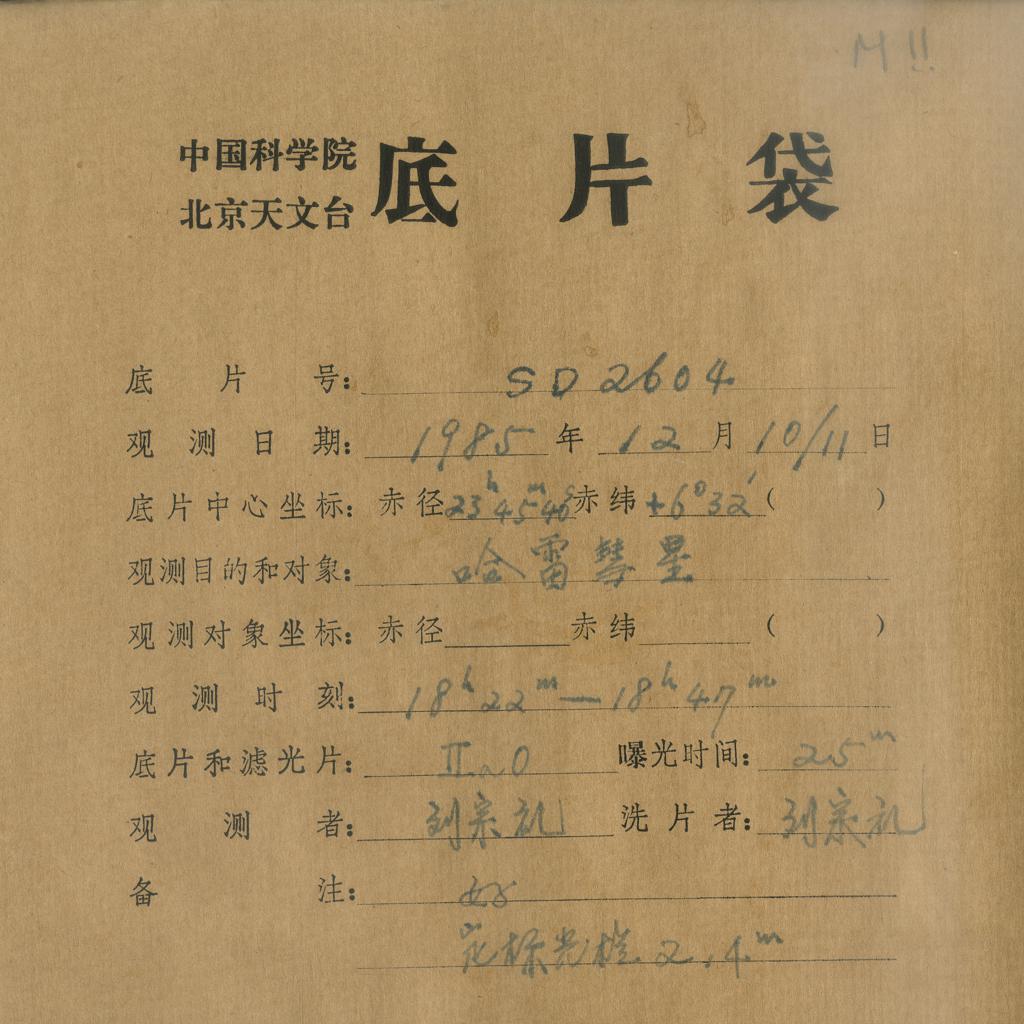 M !!
中国科学院
北京天文台
底片袋
底片号： SD 2604
观测日期： 1985 年 12 月 10/11 日
底片中心坐标： 赤径 23ʰ45ᵐ40ˢ 赤纬 +6°32′ （ ）
观测目的和对象： 哈雷彗星
观测对象坐标： 赤径 赤纬 （ ）
观测时刻： 18ʰ22ᵐ—18ʰ47ᵐ
底片和滤光片： IIaO 曝光时间： 25ᵐ
观测者： 刘宗礼 洗片者： 刘宗礼
备注： 好
光 2.4ᵐ